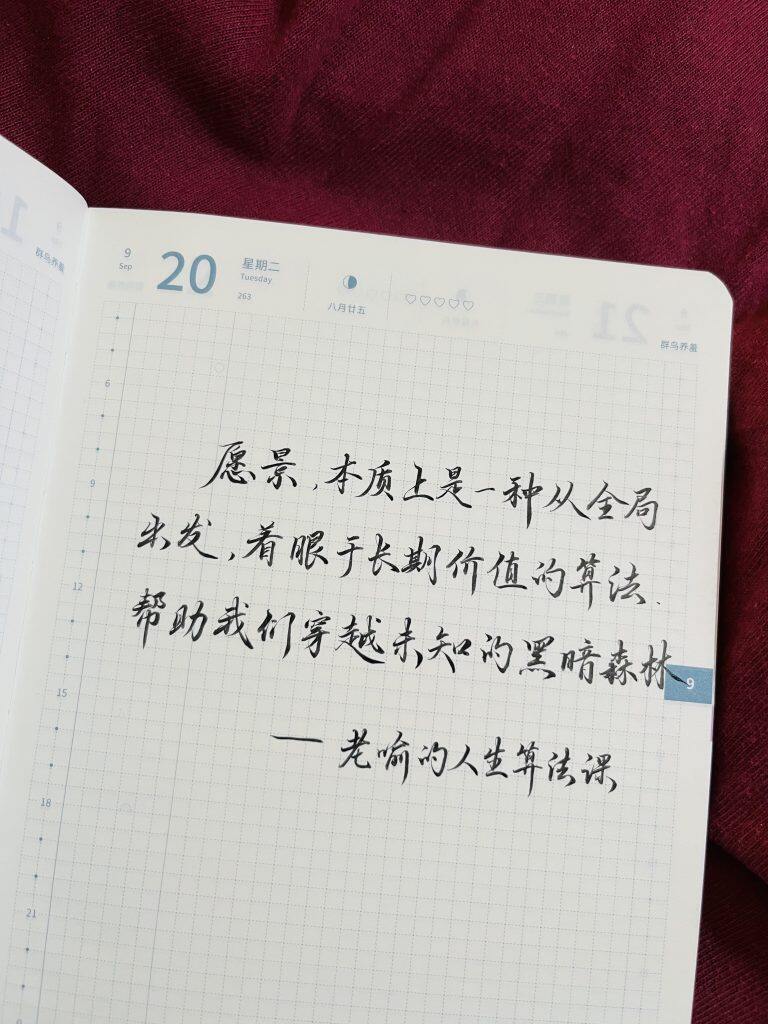 9
Sep
20
星期二
Tuesday
263
八月廿五
群鸟养羞
群鸟养羞
21
6
9
12
15
18
21
9
愿景,本质上是一种从全局
出发,着眼于长期价值的算法.
帮助我们穿越未知的黑暗森林
— 老喻的人生算法课